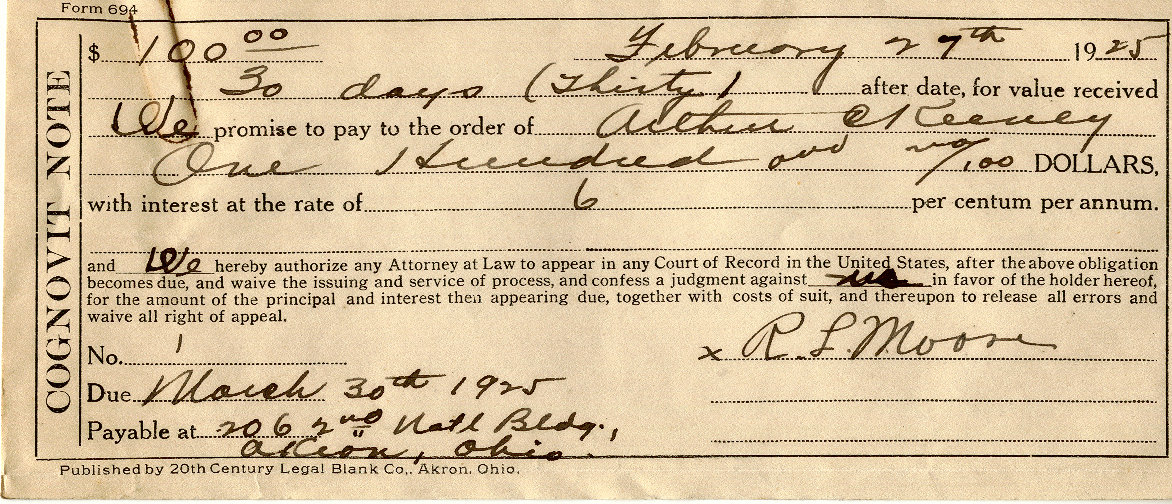 Form 694
COGNOVIT NOTE
$ 100 00 February 27th 1925
30 days (Thirty) after date, for value received
We promise to pay to the order of Arthur C Keeney
One Hundred and no/100 DOLLARS,
with interest at the rate of 6 per centum per annum.
and We hereby authorize any Attorney at Law to appear in any Court of Record in the United States, after the above obligation
becomes due, and waive the issuing and service of process, and confess a judgment against us in favor of the holder hereof,
for the amount of the principal and interest then appearing due, together with costs of suit, and thereupon to release all errors and
waive all right of appeal.
No. 1
x R. L. Moore
Due March 30th 1925
Payable at 206 2nd Natl Bldg.,
Akron, Ohio.
Published by 20th Century Legal Blank Co,. Akron, Ohio.